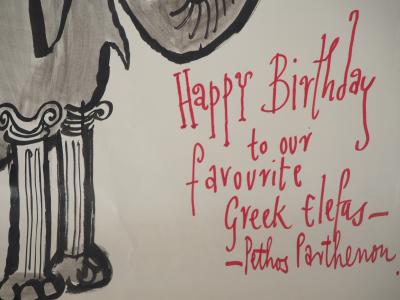 Happy Birthday
to our
favourite
Greek Elefas—
—Pethos Parthenon.